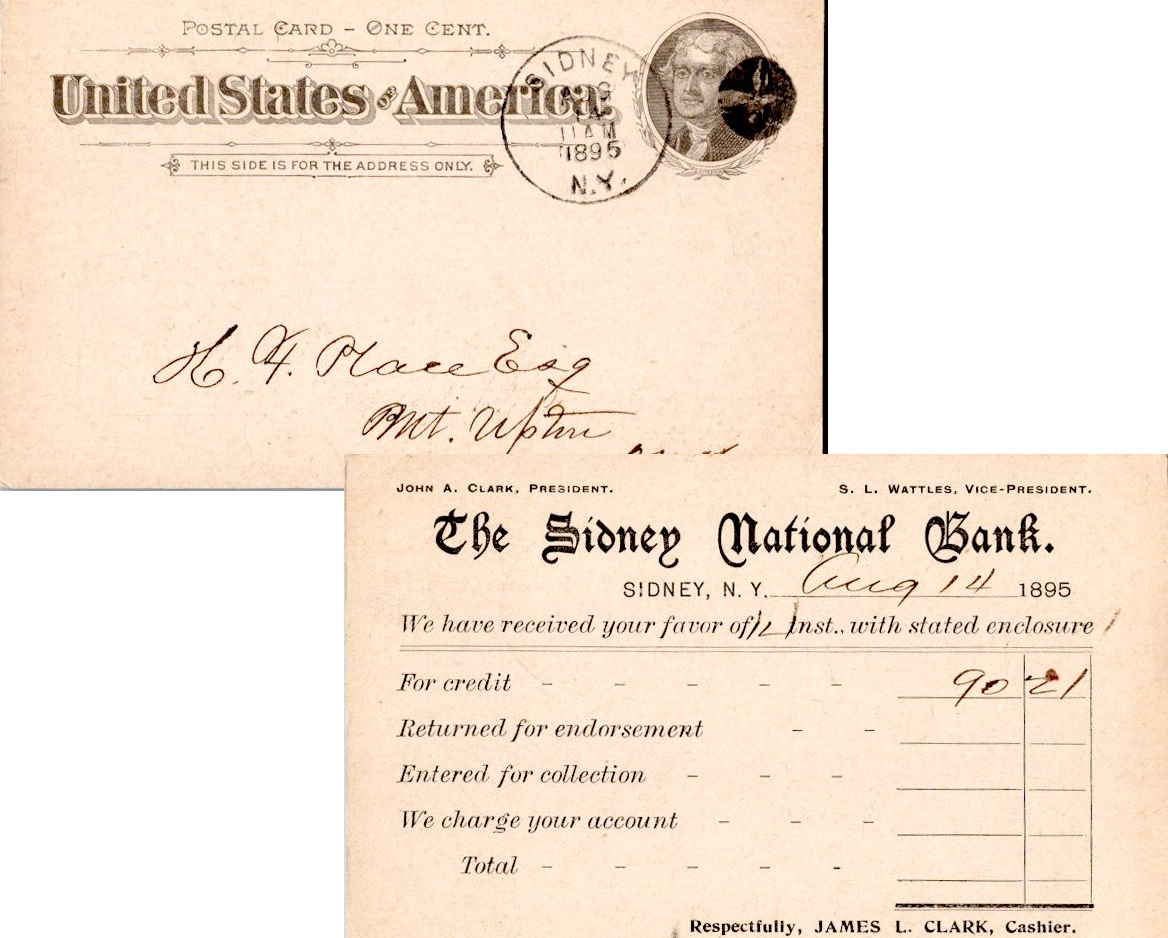 POSTAL CARD – ONE CENT.
United States of America.
THIS SIDE IS FOR THE ADDRESS ONLY.
SIDNEY
AUG
14
11 AM
1895
N.Y.
H. F. Place Esq
Mt. Upton
JOHN A. CLARK, PRESIDENT.
S. L. WATTLES, VICE-PRESIDENT.
The Sidney National Bank.
SIDNEY, N. Y. Aug 14 1895
We have received your favor of 12 Inst., with stated enclosure
For credit - - - - - 90 21
Returned for endorsement - -
Entered for collection - - -
We charge your account - - -
Total - - - - -
Respectfully, JAMES L. CLARK, Cashier.